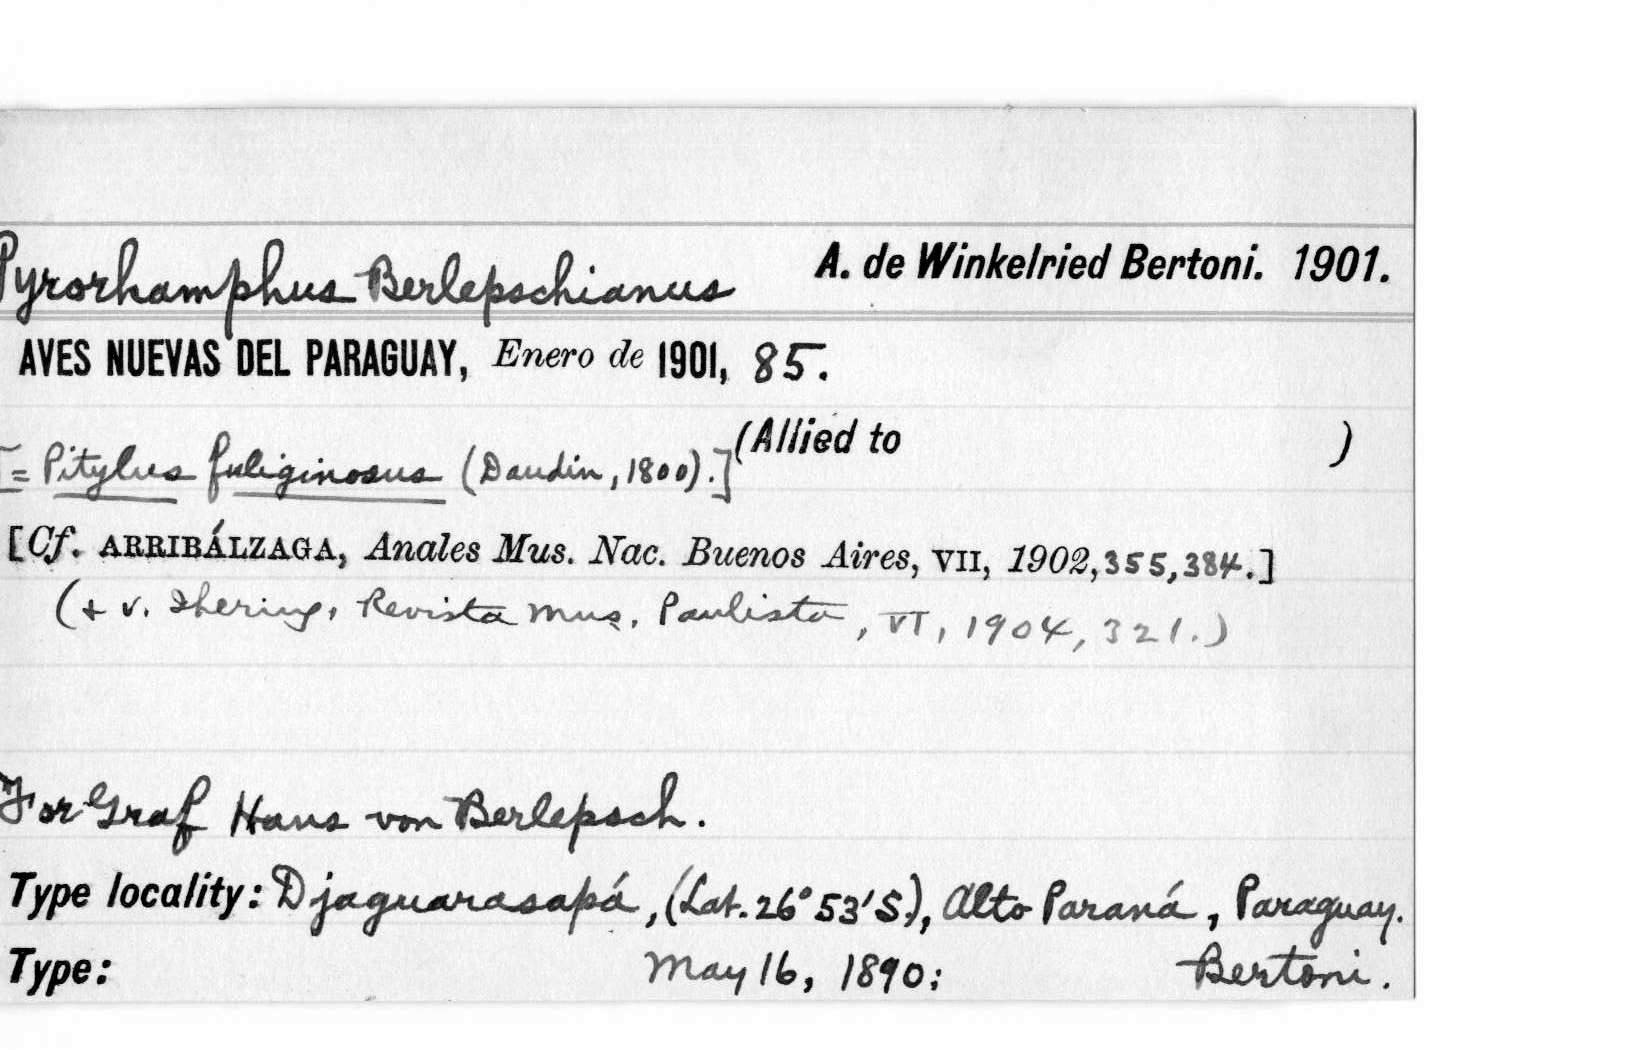 Pyrorhamphus Berlepschianus A. de Winkelried Bertoni. 1901.
AVES NUEVAS DEL PARAGUAY, Enero de 1901, 85.
[= Pitylus fuliginosus (Daudin, 1800).] (Allied to )
[Cf. ARRIBÁLZAGA, Anales Mus. Nac. Buenos Aires, VII, 1902, 355, 384.]
(+ v. Ihering, Revista Mus. Paulista, VI, 1904, 321.)
For Graf Hans von Berlepsch.
Type locality: Djaguarasapá, (Lat. 26° 53' S.), Alto Paraná, Paraguay.
Type: May 16, 1890; Bertoni.